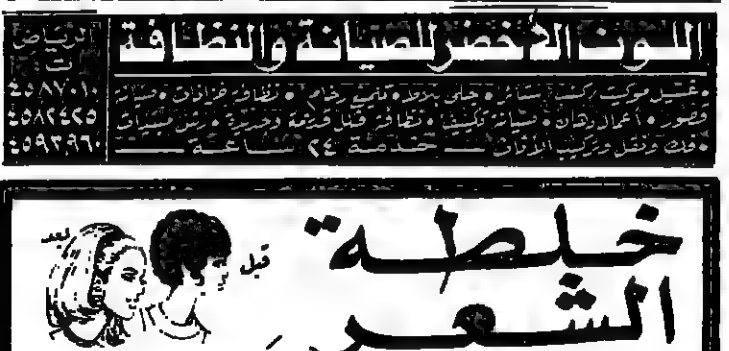 اللون الأخضر للصيانة والنظافة
الرياض
ت:
٤٥٨٧٠١٠
٤٥٨٢٤٢٥
٤٥٩٣٩٦٠
• غسيل موكيت • كنب • ستائر • جلي بلاط • تلميع رخام • نظافة خزانات • صيانة
قصور • أعمال دهان • صيانة تكييف • نظافة فلل قديمة وجديدة • رش مبيدات
• فك ونقل وتركيب الأثاث — خدمة ٢٤ ساعة
خلطة
الشعر
قبل
بعد